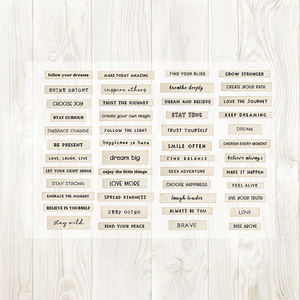 follow your dreams
SHINE BRIGHT
CHOOSE JOY
STAY CURIOUS
EMBRACE CHANGE
BE PRESENT
LOVE, LAUGH, LIVE
LET YOUR LIGHT SHINE
STAY STRONG
EMBRACE THE MOMENT
BELIEVE IN YOURSELF
stay wild
MAKE TODAY AMAZING
inspire others
TRUST THE JOURNEY
create your own magic
FOLLOW THE LIGHT
happiness is here
dream big
enjoy the little things
LOVE MORE
SPREAD KINDNESS
KEEP GOING
FIND YOUR PEACE
FIND YOUR BLISS
breathe deeply
DREAM AND BELIEVE
STAY TRUE
TRUST YOURSELF
SMILE OFTEN
FIND BALANCE
SEEK ADVENTURE
CHOOSE HAPPINESS
laugh louder
ALWAYS BE YOU
BRAVE
GROW STRONGER
CREATE YOUR PATH
LOVE THE JOURNEY
KEEP DREAMING
DREAM
CHERISH EVERY MOMENT
believe always
MAKE IT HAPPEN
FEEL ALIVE
LIVE YOUR TRUTH
LOVE
RISE ABOVE